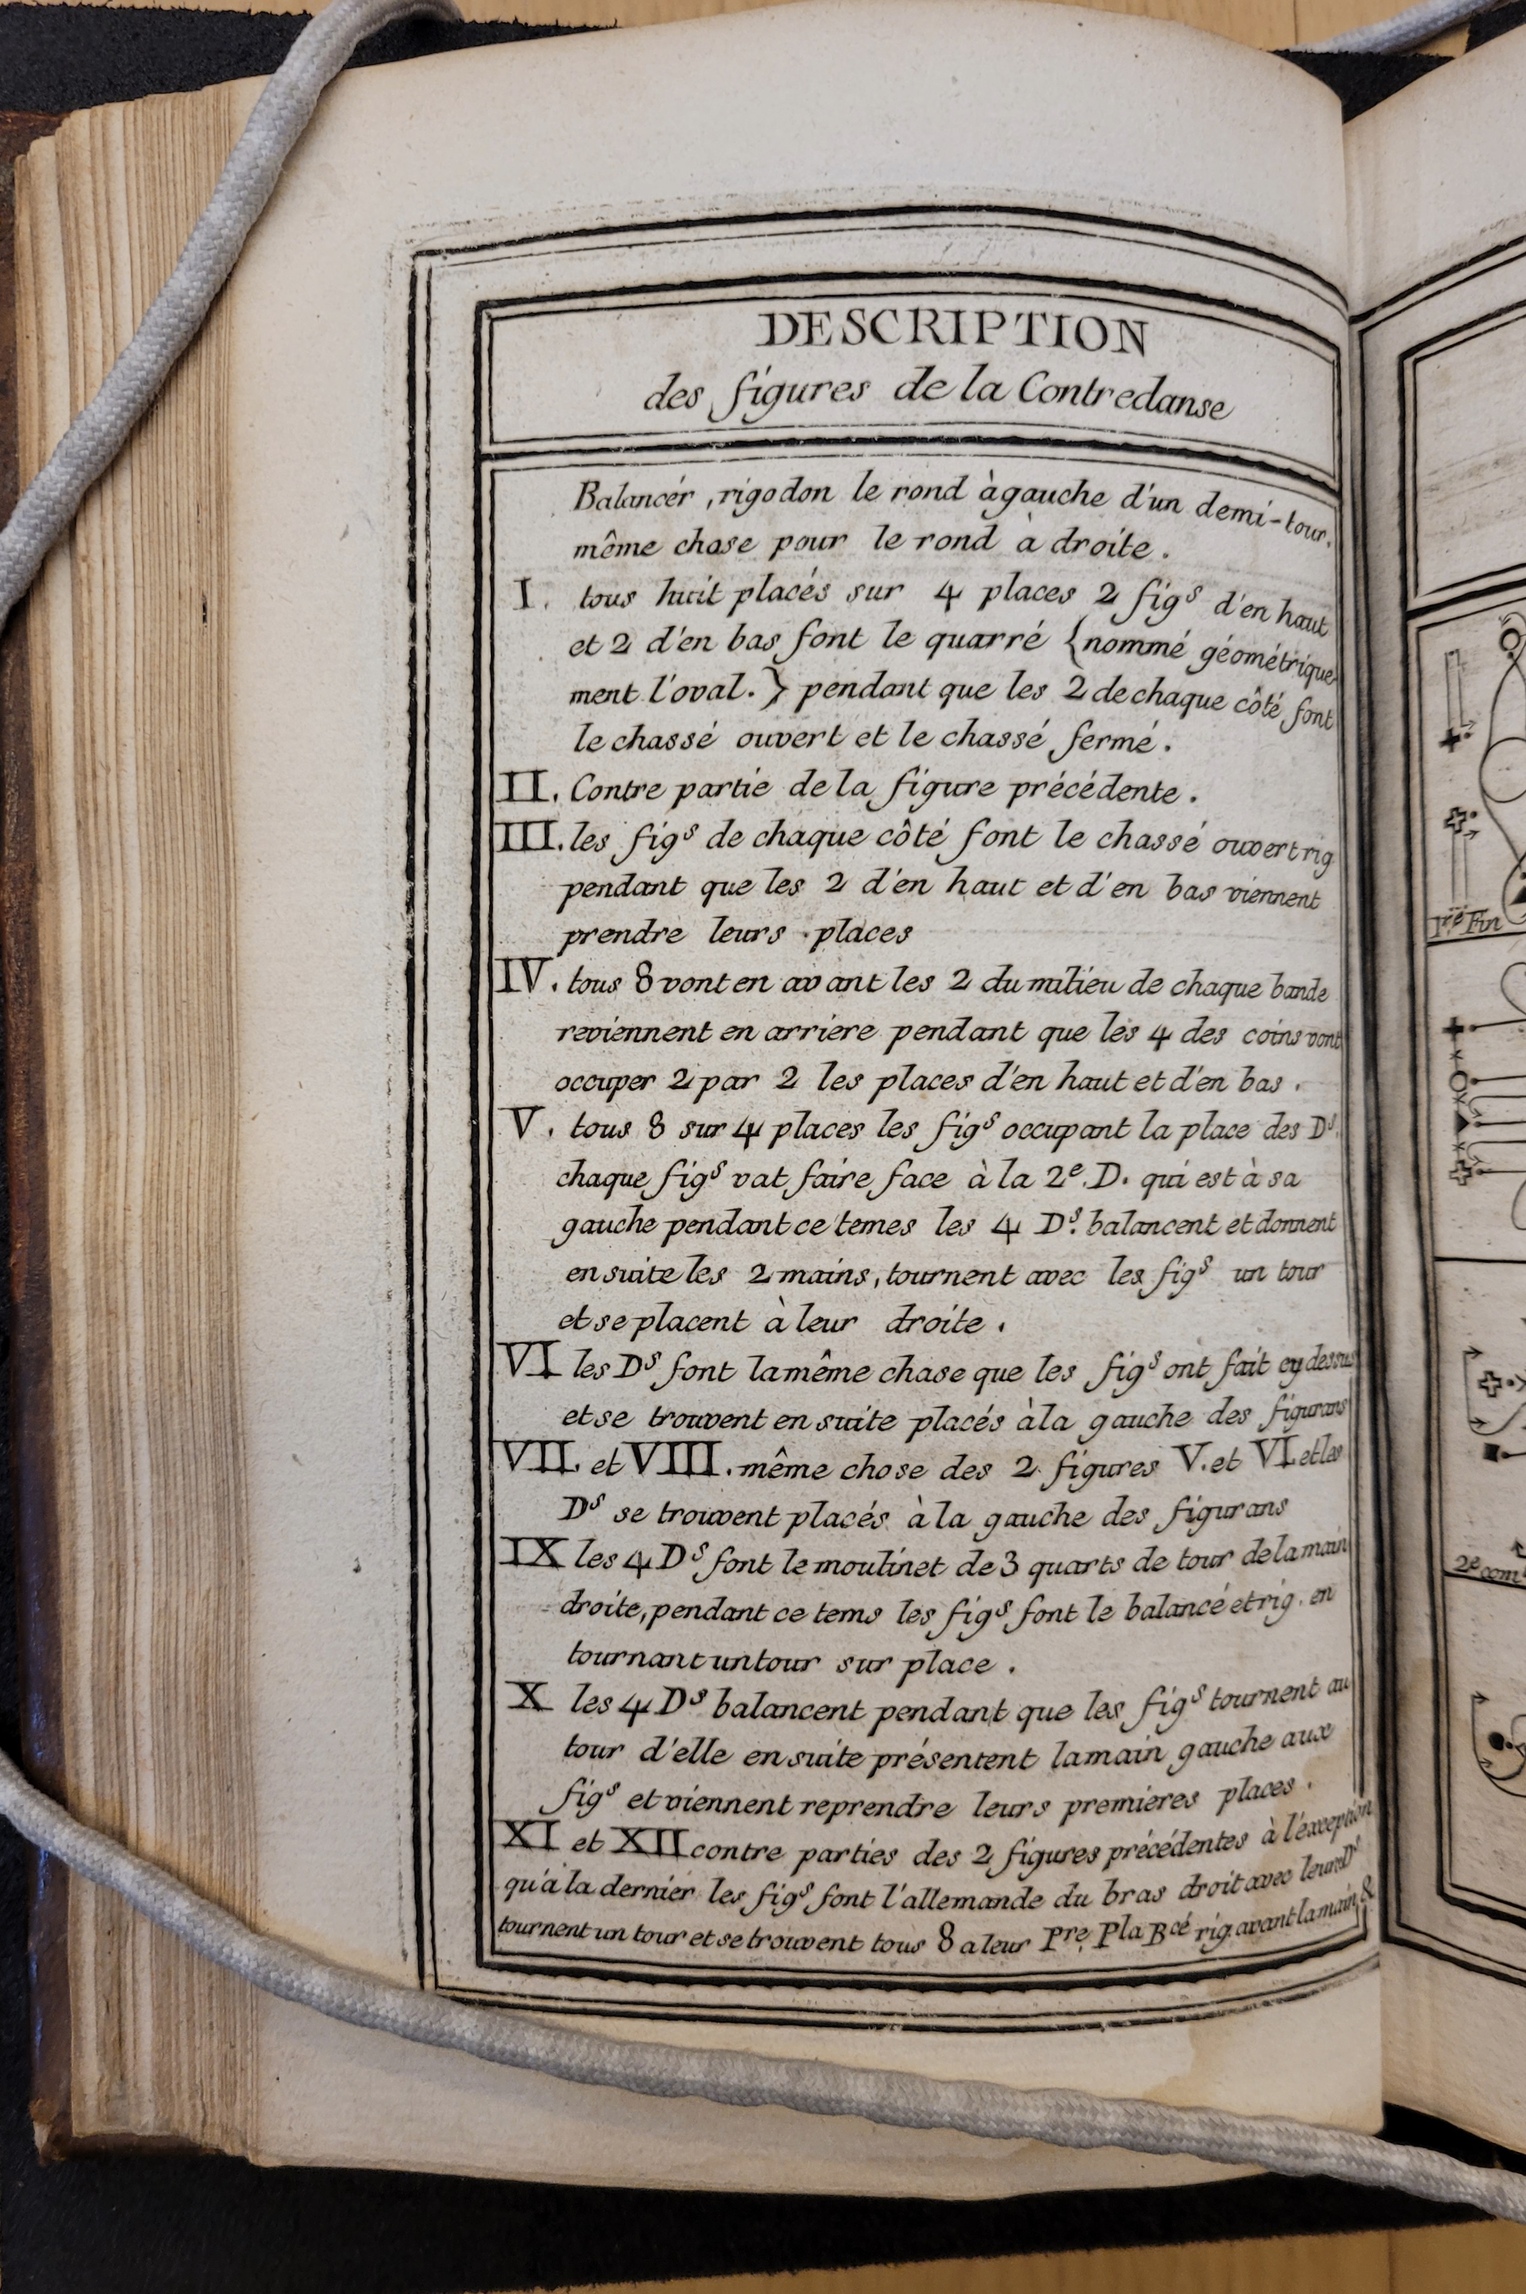 DESCRIPTION
des figures de la Contredanse
Balancér, rigodon le rond à gauche d'un demi-tour.
même chose pour le rond a droite.
I. tous huit placés sur 4 places 2 figs d'en haut
et 2 d'en bas font le quarré {nommé géométrique-
ment l'oval.} pendant que les 2 de chaque côté font
le chassé ouvert et le chassé fermé.
II. Contre partie de la figure précédente.
III. les figs de chaque côté font le chassé ouvert rig
pendant que les 2 d'en haut et d'en bas viennent
prendre leurs places
IV. tous 8 vont en avant les 2 du milieu de chaque bande
reviennent en arriere pendant que les 4 des coins vont
occuper 2 par 2 les places d'en haut et d'en bas.
V. tous 8 sur 4 places les figs occupant la place des Ds.
chaque figs vat faire face à la 2e. D. qui est à sa
gauche pendant ce temes les 4 Ds. balancent et donnent
ensuite les 2 mains, tournent avec les figs un tour
et se placent à leur droite.
VI les Ds font la même chose que les figs ont fait cy dessus
et se trouvent ensuite placés à la gauche des figurans
VII. et VIII. même chose des 2 figures V. et VI. et les
Ds se trouvent placés à la gauche des figurans
IX les 4 Ds font le moulinet de 3 quarts de tour de la main
droite, pendant ce tems les figs font le balancé et rig. en
tournant un tour sur place.
X les 4 Ds balancent pendant que les figs tournent au
tour d'elle ensuite présentent la main gauche aux
figs et viennent reprendre leurs premieres places.
XI et XII contre parties des 2 figures précédentes à l'éxception
qu'à la dernier les figs font l'allemande du bras droit avec leurs Ds
tournent un tour et se trouvent tous 8 a leur Pre. Pla Bcé rig. avant la main &
1re Fin
2e com